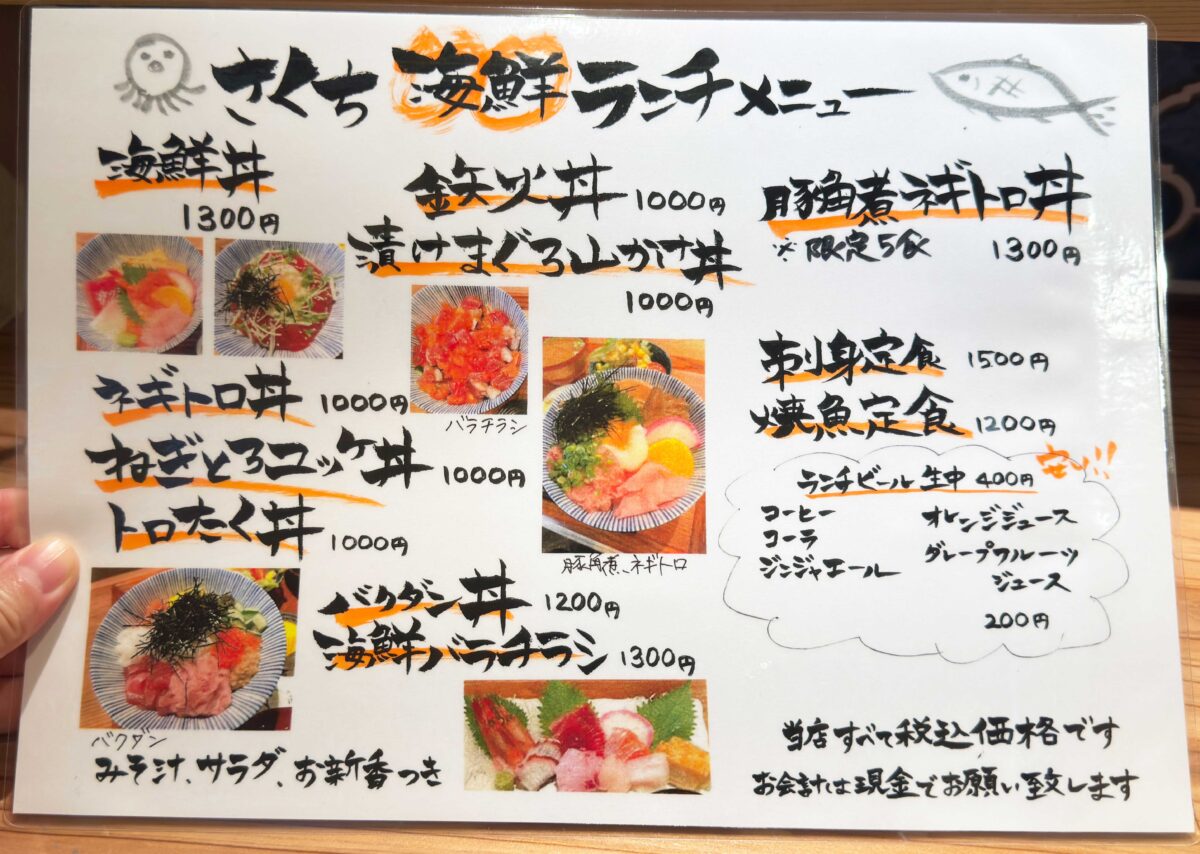 さくち 海鮮ランチメニュー
海鮮丼
1300円
ネギトロ丼 1000円
ねぎとろユッケ丼 1000円
トロたく丼 1000円
バクダン
みそ汁、サラダ、お新香つき
鉄火丼 1000円
漬けまぐろ山かけ丼
1000円
バラチラシ
豚角煮、ネギトロ
バクダン丼 1200円
海鮮バラチラシ 1300円
豚角煮ネギトロ丼
※限定5食 1300円
刺身定食 1500円
焼魚定食 1200円
安い!!
ランチビール 生中 400円
コーヒー
コーラ
ジンジャエール
オレンジジュース
グレープフルーツ
ジュース
200円
当店すべて税込価格です
お会計は現金でお願い致します